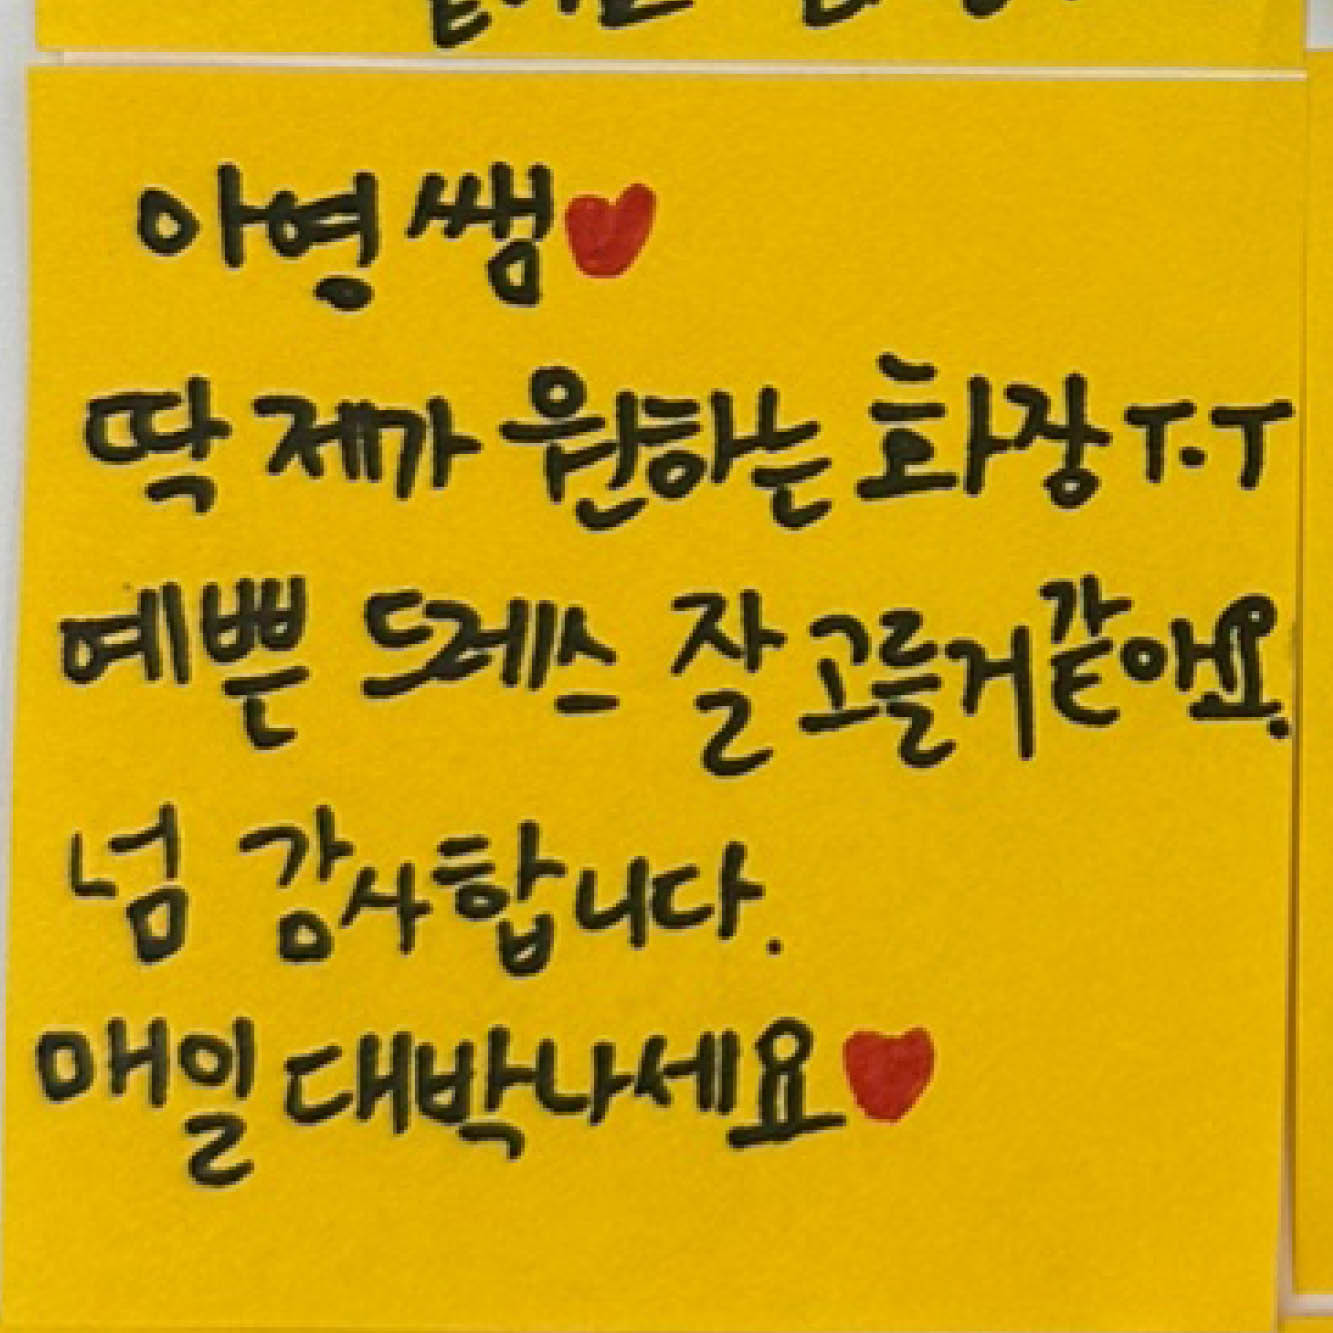 아영쌤♥
딱 제가 원하는 화장 T.T
예쁜 드레스 잘 고를거 같애요.
넘 감사합니다.
매일 대박나세요♥